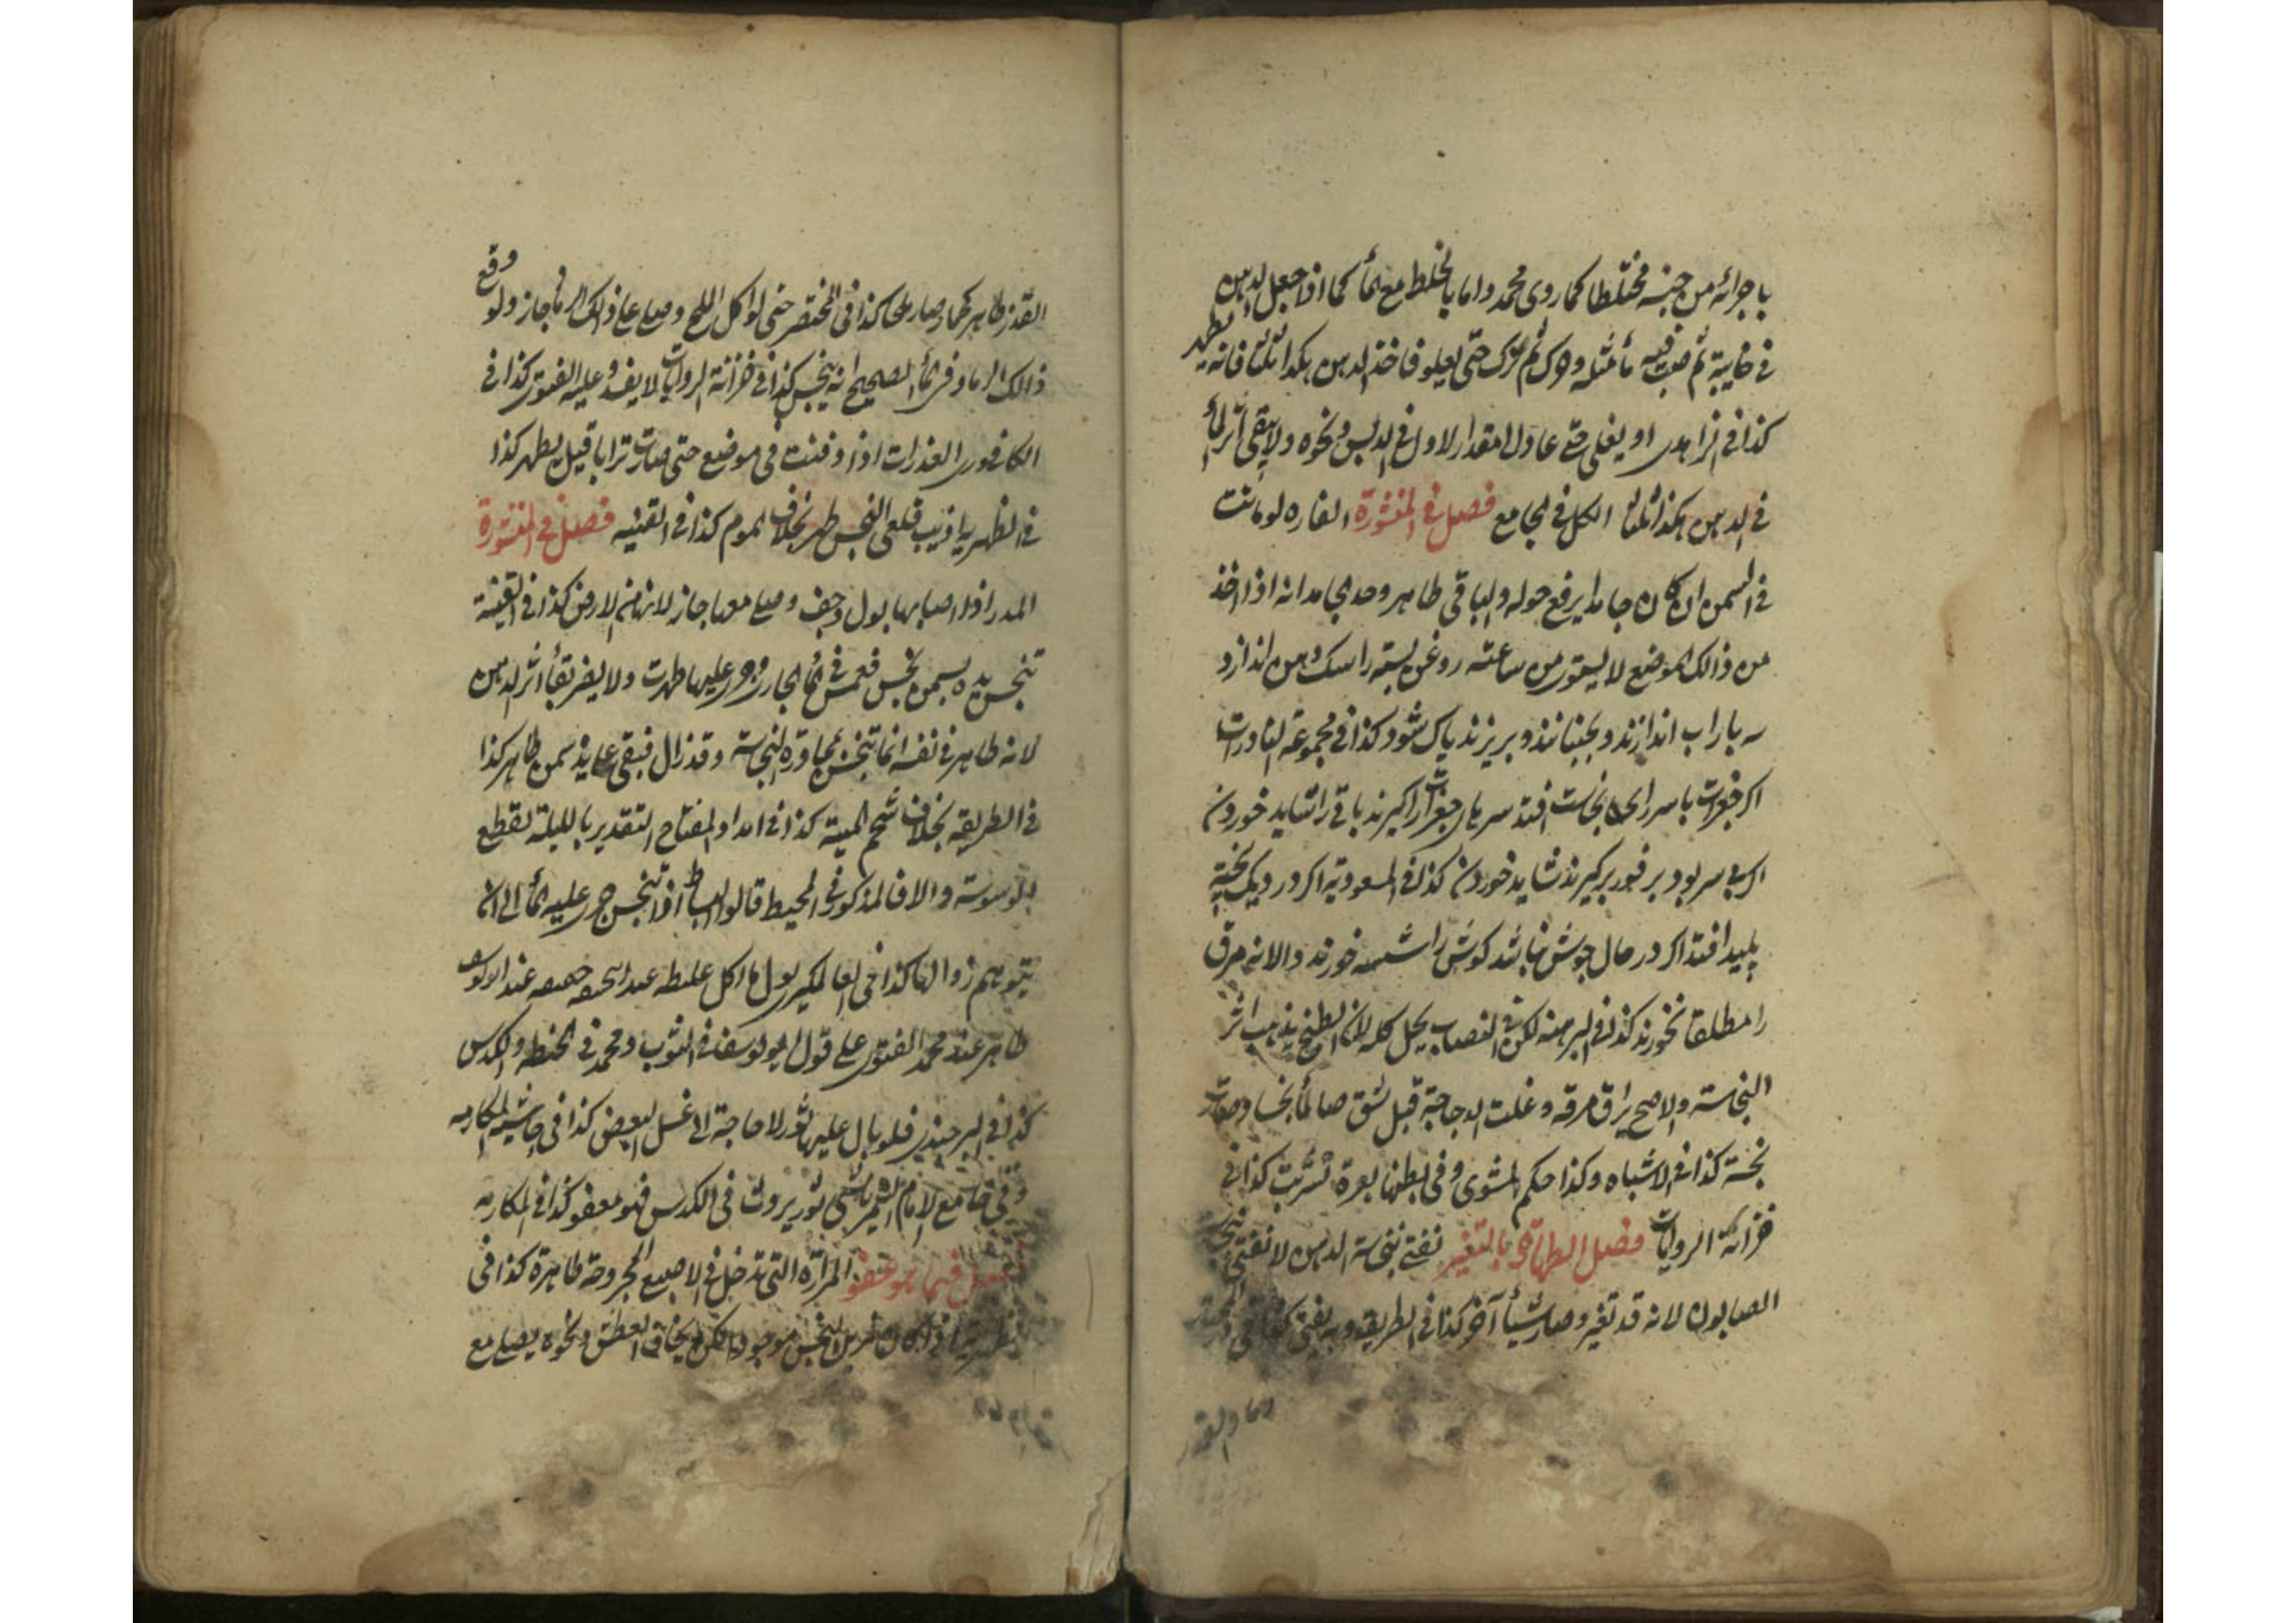 باجرائه من جنسه مختلطا كما روى محمد واما بالخلط مع الماء كما اذا جعل الدهن
في خابية ثم صب فيه ماء مثله وحرك ثم ترك حتى يعلو فاخذ الدهن هكذا ثلثا فانه يطهر
كذا في الزاهدى او يغلى حتى عاد الى المقدار الاول في الدبس ونحوه ولا يبقى اثر الماء
في الدهن هكذا ثلثا الكل في الجامع فصل في المنثورة الفاره لو ماتت
في السمن ان كان جامدا يرفع حوله والباقى طاهر وحد الجامد انه اذا اخذ
من ذالك الموضع لا يستوى من ساعته روغن بسته را سك دهن اندازد
سه بار اب اندازند و بجنبانند و بريزند پاك شود كذا في مجموعة النادرات
اكر جغرات با سر اى نجاست افتد سرهاى جغرات را كيرند باقى را نشايد خوردن
اكر بى سر بود بر فور بركيرند شايد خوردن كذا في المسعودية اكر در ديك پخته
پليد افتد اكر در حال جوش نباشد كوش را شسته خورند والا نه مرق
را مطلقا نخورند كذا في البرهنه لكن في النصاب يحل كله لان الطبخ يذهب اثر
النجاسة والاصح يراق مرقه وغلت الدجاجة قبل شق صار الماء نجسا وصارت
نجسة كذا في الاشباه وكذا حكم المشوى وفي بطنها بعرة تسربت كذا في
خزانة الروايات فصل الطهارة بالتغير نفتى بنجاسة الدهن لا نفتى بنجاسة
الصابون لانه قد تغير وصار شيأ آخر كذا في الطريقه وبه يفتى كذا في
رماد القذر
القذر طاهر كحمار صار ملحا كذا في المختصر حتى لو اكل الملح وصلى على ذالك الرماد جاز ولو وقع
ذالك الرماد فى الماء الصحيح انه ينجس كذا في خزانة الروايات لا يفسد وعليه الفتوى كذا في
الكافورى العذرات اذا دفنت في موضع حتى صارت ترابا قيل يطهر كذا
في الظهيريه اذيب قلعى النجس طهر بخلاف الموم كذا في القنيه فصل في المنثورة
المدر اذا اصابها بول وجف وصلى معها جاز لانها من الارض كذا في القنية
تنجس يده بسمن نجس فغمس في الماء الجارى وجرى عليها طهرت ولا يضر بقاء اثر الدهن
لانه طاهر في نفسه انما تنجس بمجاورة النجاسة وقد زال فبقى على يده سمن طاهر كذا
في الطريقه بخلاف شحم الميتة كذا في امداد المفتاح التقدير بالليلة لقطع
الوسوسة والا فالمذكور في المحيط قالوا البساط اذا تنجس جرى عليه الماء الى ان
يتوهم زوالها كذا في العالمكيرى بول ما اكل غليظه عند ابى حنيفه خفيفه عند ابو يوسف
طاهر عند محمد الفتوى على قول ابو يوسف في الثوب ومحمد في الحنطه والكدس
كذا في البرجندى فلو بال عليها ثور لا حاجة الى غسل البعض كذا في حاشية المكارمه
وفي جامع الامام التمرتاشى ثور يروث في الكدس فهو معفو كذا في المكارمه
فصل فيما هو عفو المرارة التى تدخل في الاصبع المجروحة طاهرة كذا في
الظهيرية اذا كان مزيل النجس موجودا لكن يخاف العطش ونحوه يصلى مع